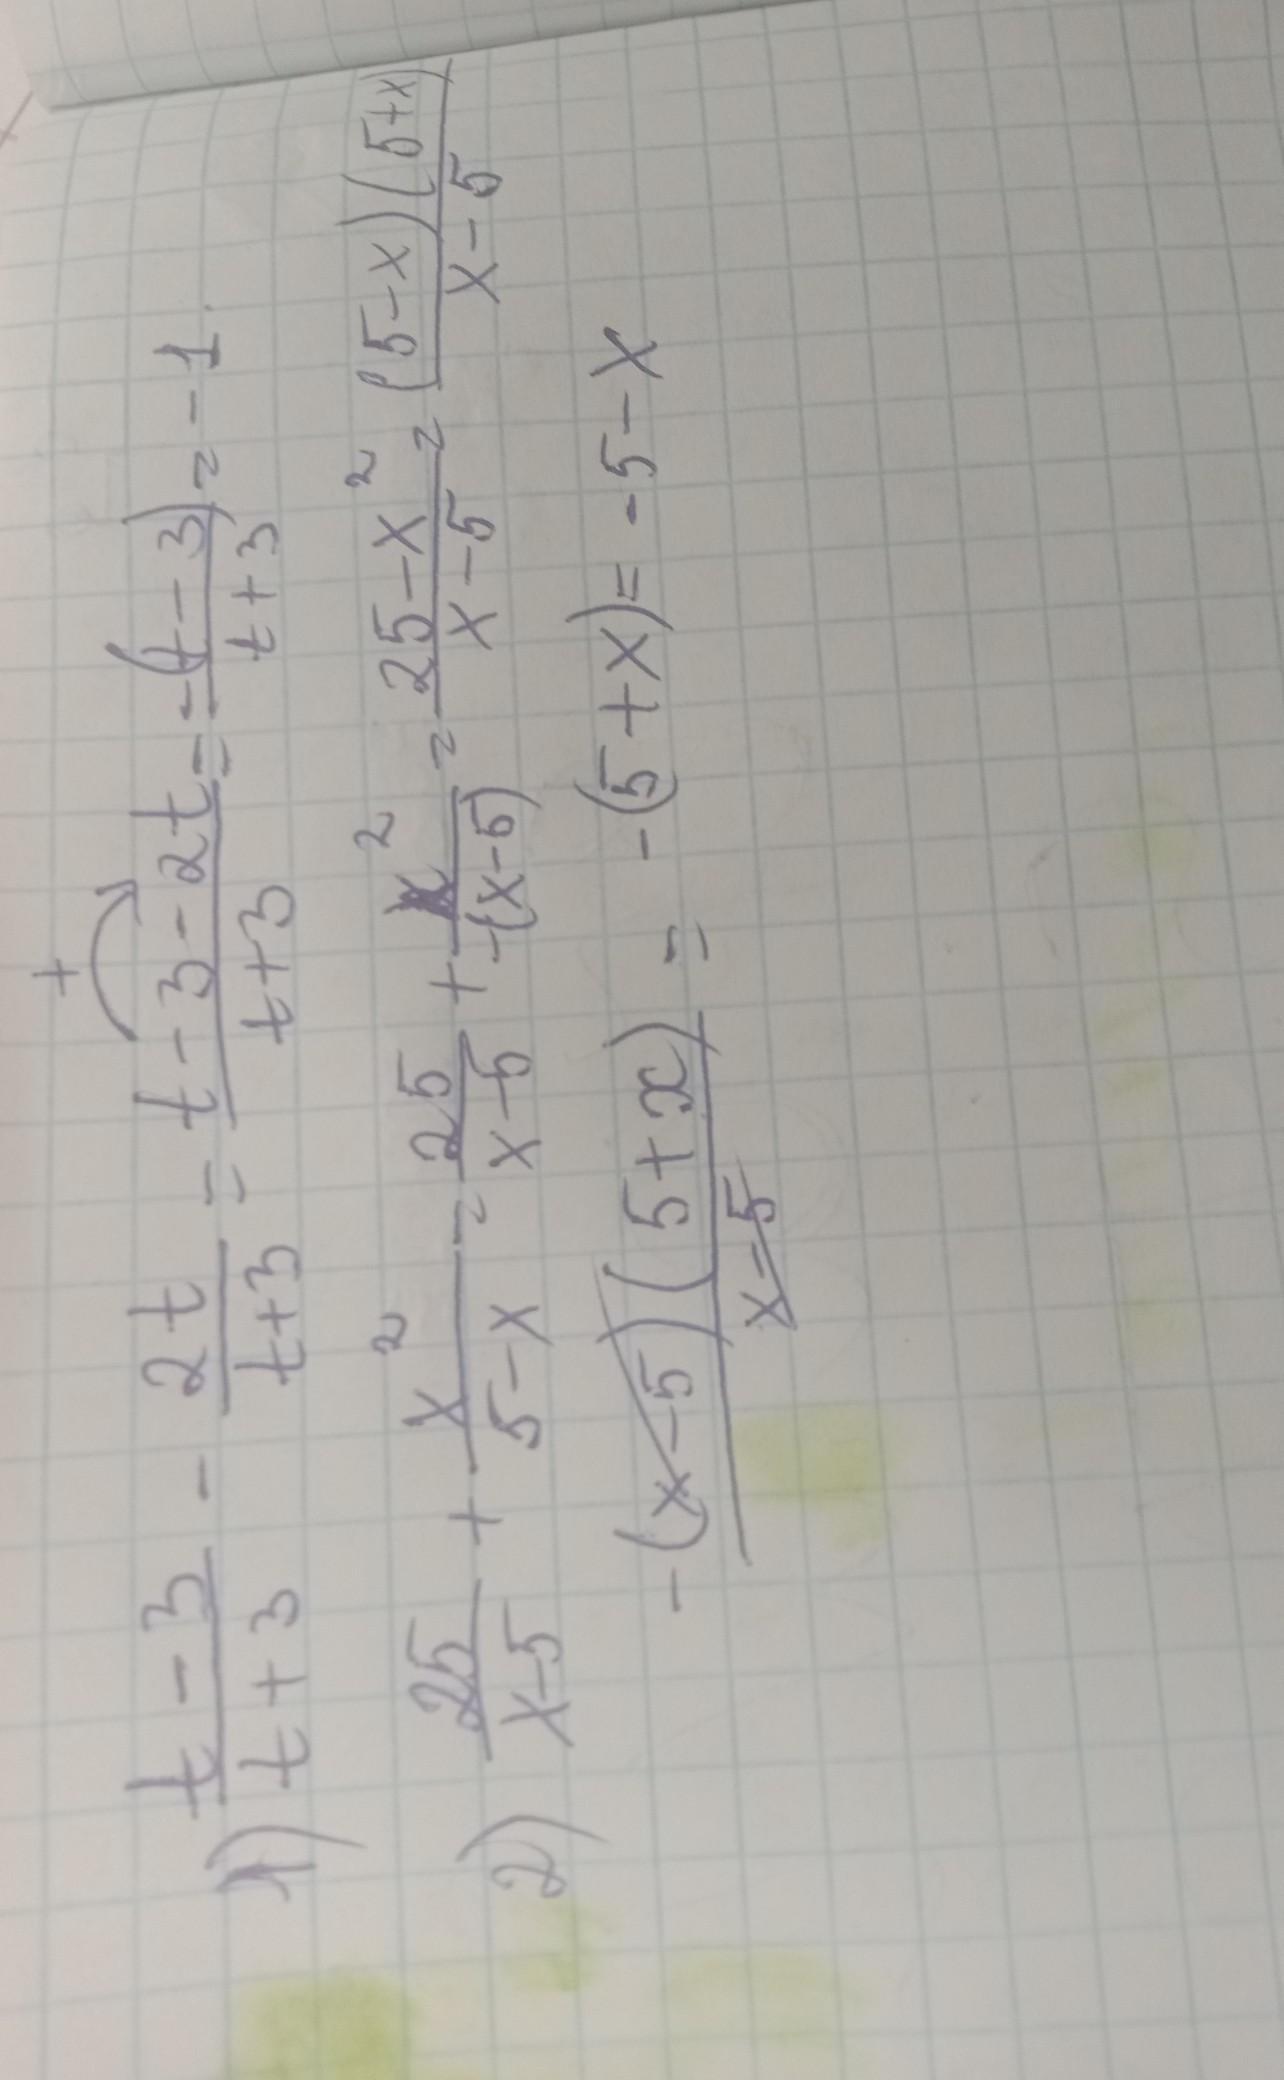 1) (t-3)/(t+3) - 2t/(t+3) = (t-3-2t)/(t+3) = = -(t-3)/(t+3) = -1.
+
2) 25/(x-5) + x²/(5-x) = 25/(x-5) + x²/(-(x-5)) = (25-x²)/(x-5) = (5-x)(5+x)/(x-5)
-(x-5)(5+x)/(x-5) = -(5+x) = -5-x